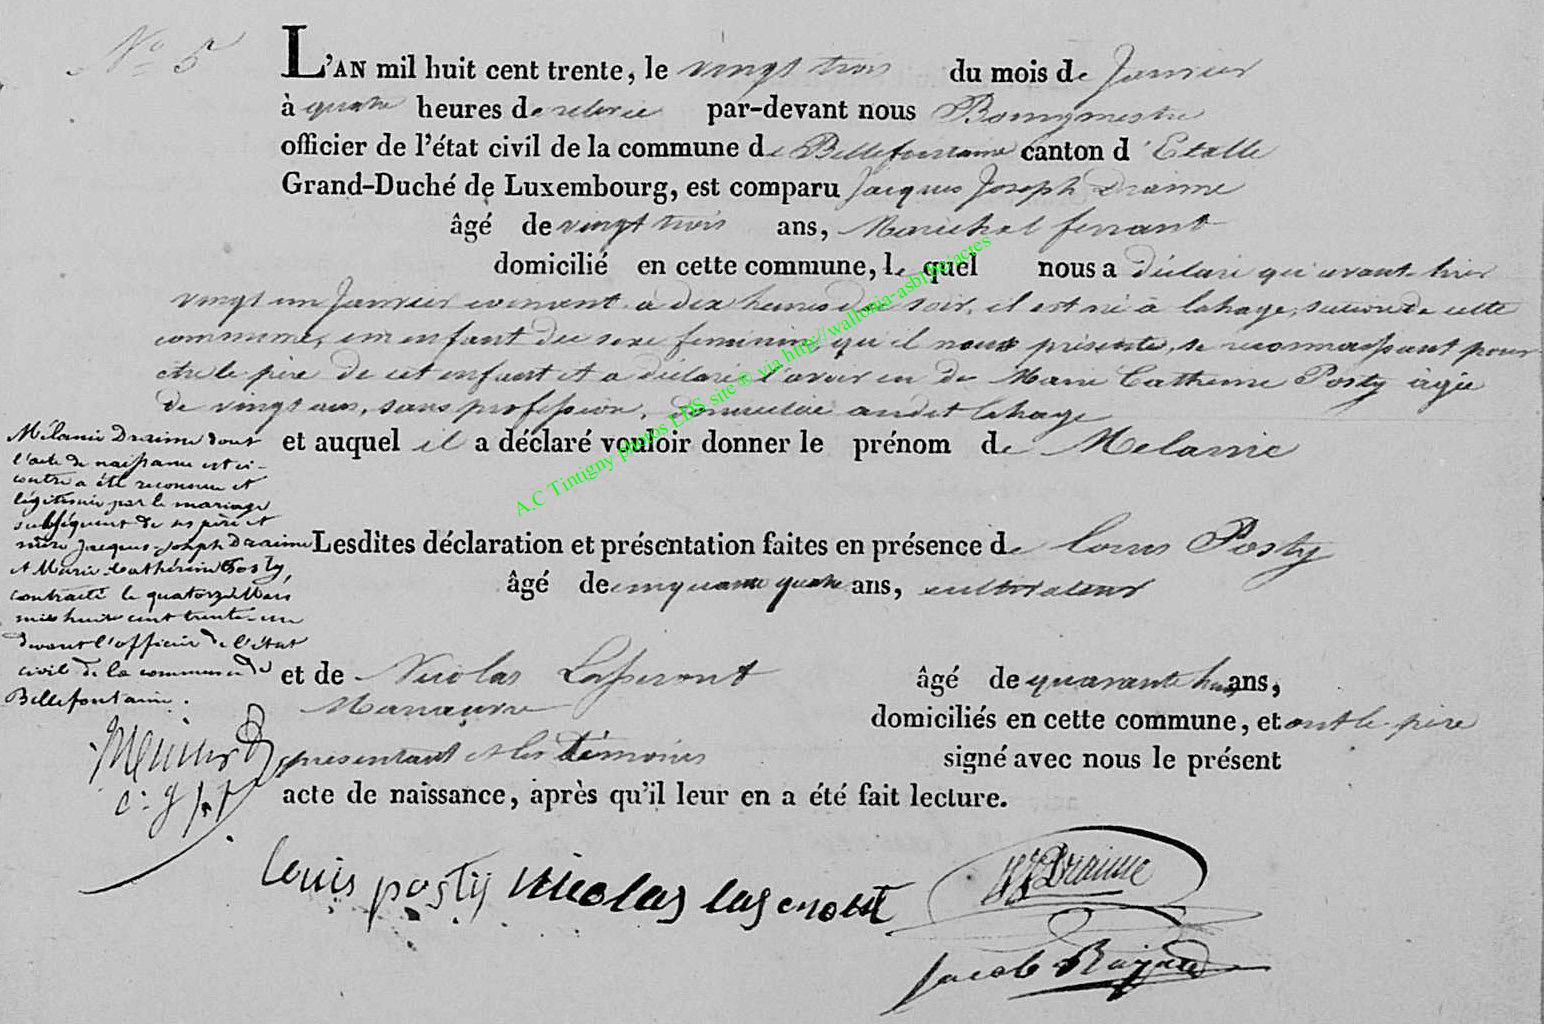 No 5
L'AN mil huit cent trente, le vingt trois du mois de Janvier
à quatre heures de relevée par-devant nous Bourgmestre
officier de l'état civil de la commune de Bellefontaine canton d'Etalle
Grand-Duché de Luxembourg, est comparu Jacques Joseph Draime
âgé de vingt trois ans, Marichal ferrant
domicilié en cette commune, le quel nous a déclaré qu'avant hier
vingt un Janvier courant à dix heures du soir, il est né à lahage, section de cette
commune, un enfant du sexe feminin, qu'il nous présente, se reconnaissant pour
être le père de cet enfant et a déclaré l'avoir eu de Marie Catherine Posty âgée
de vingt ans, sans profession, domiciliée audit lahage
et auquel il a déclaré vouloir donner le prénom de Melanie
Lesdites déclaration et présentation faites en présence de Louis Posty
âgé de cinquante quatre ans, cultivateur
et de Nicolas âgé de quarante huit ans,
Manœuvre domiciliés en cette commune, et ont le père
présentant et les témoins signé avec nous le présent
acte de naissance, après qu'il leur en a été fait lecture.
Mélanie Draime dont
l'acte de naissance est ci-
contre a été reconnue et
légitimée par le mariage
subséquent de ses père et
mère Jacques-Joseph Draime
et Marie-Catherine Posty,
contracté le quatorze Mars
mil huit cent trente-un
devant l'officier de l'état
civil de la commune de
Bellefontaine.
louis posty Nicolas JJDraime
Jacob
A.C Tintigny photos LDS site ® via http://wallonia-asbl.be/actes